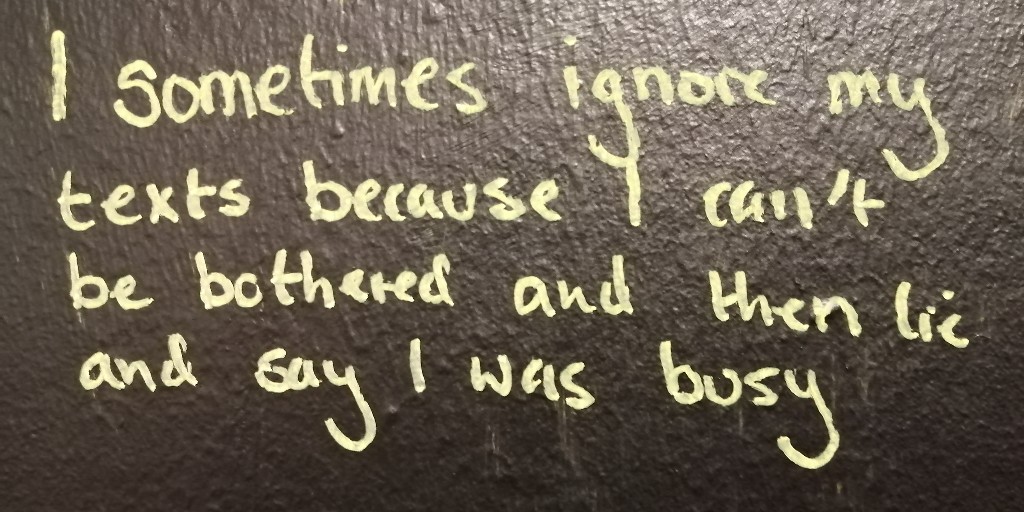 I sometimes ignore my
texts because I can't
be bothered and then lie
and say I was busy